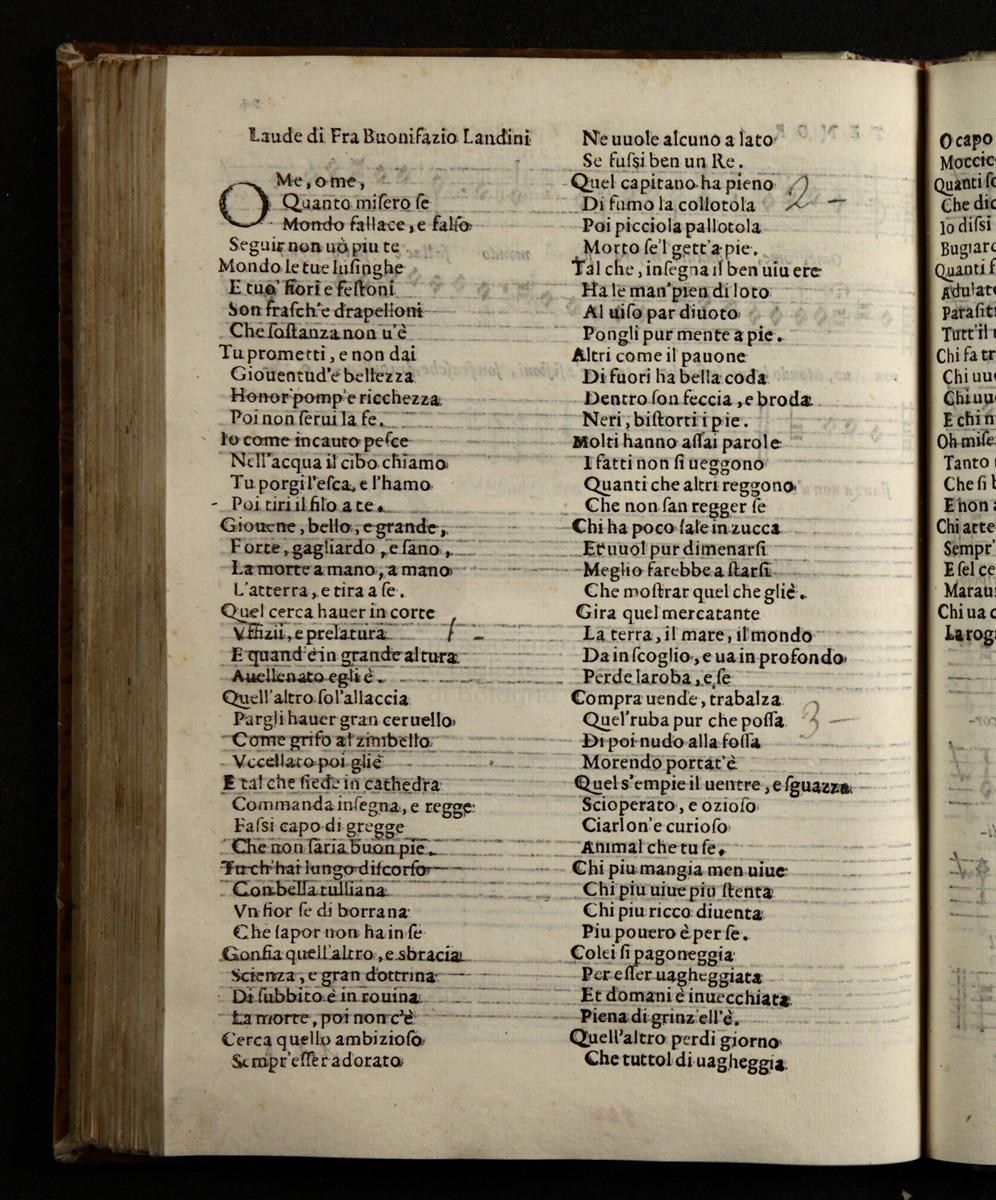 Laude di Fra Buonifazio Landini
OMe, ome,
Quanto miſero ſe
Mondo fallace, e falſo
Seguir non uò piu te
Mondo le tue luſinghe
E tuo' fiori e feſtoni
Son fraſch'e drapelloni
Che ſoſtanza non u'è
Tu prometti, e non dai
Giouentud'e bellezza
Honor pomp'e ricchezza
Poi non ſerui la fe.
Io come incauto peſce
Nell'acqua il cibo chiamo
Tu porgi l'eſca, e l'hamo
Poi tiri il filo a te.
Giouene, bello, e grande,
Forte, gagliardo, e ſano,
La morte a mano, a mano
L'atterra, e tira a ſe.
Quel cerca hauer in corte
Vffizii, e prelatura
E quand'è in grande altura
Auellenato egli è.
Quell'altro ſol'allaccia
Pargli hauer gran ceruello
Come grifo al zimbello
Vccellato poi gliè
E tal che ſiede in cathedra
Commanda inſegna, e regge
Faſsi capo di gregge
Che non ſaria buon pie.
Tu ch'hai lungo diſcorſo
Con bella tulliana
Vn fior ſe di borrana
Che ſapor non ha in ſe
Gonfia quell'altro, e sbracia
Scienza, e gran dottrina
Di ſubbito è in rouina
La morte, poi non c'è
Cerca quello ambizioſo
Sempr'eſſer adorato
Ne uuole alcuno a lato
Se fuſsi ben un Re.
Quel capitano ha pieno
Di fumo la collotola
Poi picciola pallotola
Morto ſe'l gett'a pie.
Tal che, inſegna il ben uiuere
Ha le man'pien di loto
Al uiſo par diuoto
Pongli pur mente a pie.
Altri come il pauone
Di fuori ha bella coda
Dentro ſon feccia, e broda
Neri, biſtorti i pie.
Molti hanno aſſai parole
I fatti non ſi ueggono
Quanti che altri reggono
Che non ſan regger ſe
Chi ha poco ſale in zucca
Et uuol pur dimenarſi
Meglio ſarebbe a ſtarſi
Che moſtrar quel che gliè.
Gira quel mercatante
La terra, il mare, il mondo
Da in ſcoglio, e ua in profondo
Perde la roba, e ſe
Compra uende, trabalza
Quel'ruba pur che poſſa
Di poi nudo alla foſſa
Morendo portat'è
Quel s'empie il uentre, e ſguazza
Scioperato, e ozioſo
Ciarlon'e curioſo
Animal che tu ſe.
Chi piu mangia men uiue
Chi piu uiue piu ſtenta
Chi piu ricco diuenta
Piu pouero è per ſe.
Colei ſi pagoneggia
Per eſſer uagheggiata
Et domani è inuecchiata
Piena di grinz'ell'è.
Quell'altro perdi giorno
Che tuttol di uagheggia
1 -
2 -
3 -
O capo
Moccic
Quanti ſc
Che dic
Io diſsi
Bugiard
Quanti f
Adulat
Paraſiti
Tutt'il
Chi fa tr
Chi uu
Chi uu
E chi n
Oh miſe
Tanto
Che ſi b
E non
Chi atte
Sempr'
E ſel ce
Maraui
Chi ua c
La rog